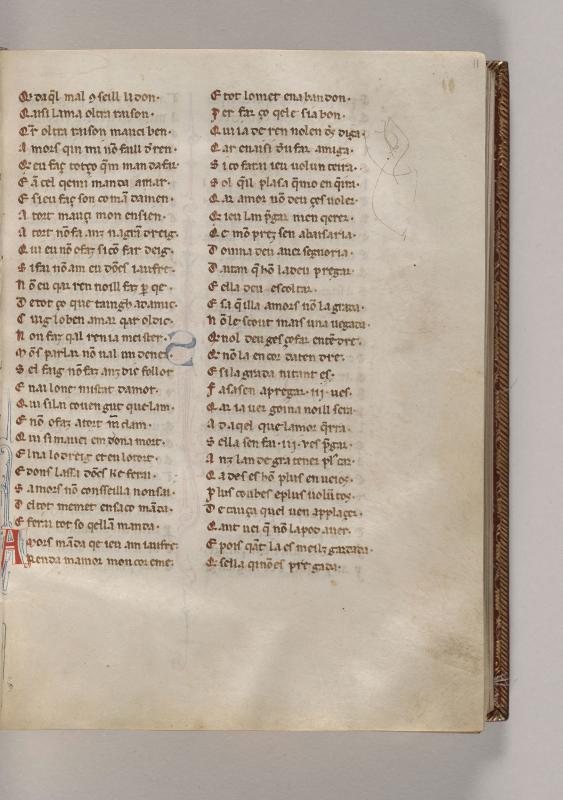 11
Q̄ daq̄l mal ꝯseill li don·
Q̄ aisi lama oltra raison·
C̄r oltra raison mauci ben·
A mors qin mi nō falli d'ren·
Q̄ eu faç totço q̄m mandafar
E ā cel qemi manda amar·
E si eu faç son comā damen·
A tort mauçi mon ensien·
A tort nōfa anz nagrā dreig·
Q ui eu nō ofaz si cō far deig·
S ifai nō am eu dōes iaufre·
N ō eu qar ren noill faz p̄ qe·
D etot ço que taingh adamic·
C uig loben amar qar oldic·
N on faz qal ren ia meister·
M ōs parlar nō val un dener
S el faig nō faz anz die follor
E nai lonc mistat damor·
Q ui siln couengut quelam·
E nō ofaz atort m̄ clam·
Q ui si mauci em dona mort·
E lna lo dreig et en lotort·
E dons lassa dōes ke ferai·
S amors nō consseilla nonsai·
D el tot memet en saco māda·
E ferai tot so qellā manda·
A mors māda qe ieu am iaufre·
Renda mamor mon cor eme·
E tot lomet en abandon·
P er far ço qele sia bon·
Q uia de ren nolen diga·
Q ar en aisi d'u far amiga·
S ico farai ieu uolunteira·
S ol q̄il plasa q̄mo enq̄ira·
Q ar amor uō deu çes uoler·
Q̄ ieu lan p̄gar men qerer·
Q̄ c mō prez sen abaisaria·
D omna deu auer segnoria·
D autan q̄ hō la deu pregar·
E ella deu escoltar·
E sa q̄illa amors nō la grada·
N ō le scout mais una uegada·
Q̄ nol deu ges çofar entēdre·
Q̄ nō la encor daren dre·
E sila grada nitant es·
F asasen apregar ·iij· ues·
Q ar ia uer goina noill sera·
A daqel que lamor q̄rra·
S ella sen fai ·iij· ves p̄gar·
A nz lan de gra tener pl̄s car·
Q̄ ades es hō plus enueios·
P lus coubes eplus uolūtos·
D e cauça quel uen applaçer·
Q̄ ant uei q̄ nō lapod auer·
E pois qāt la es meilz gardada·
Q̄ sella qi nō es pregada·